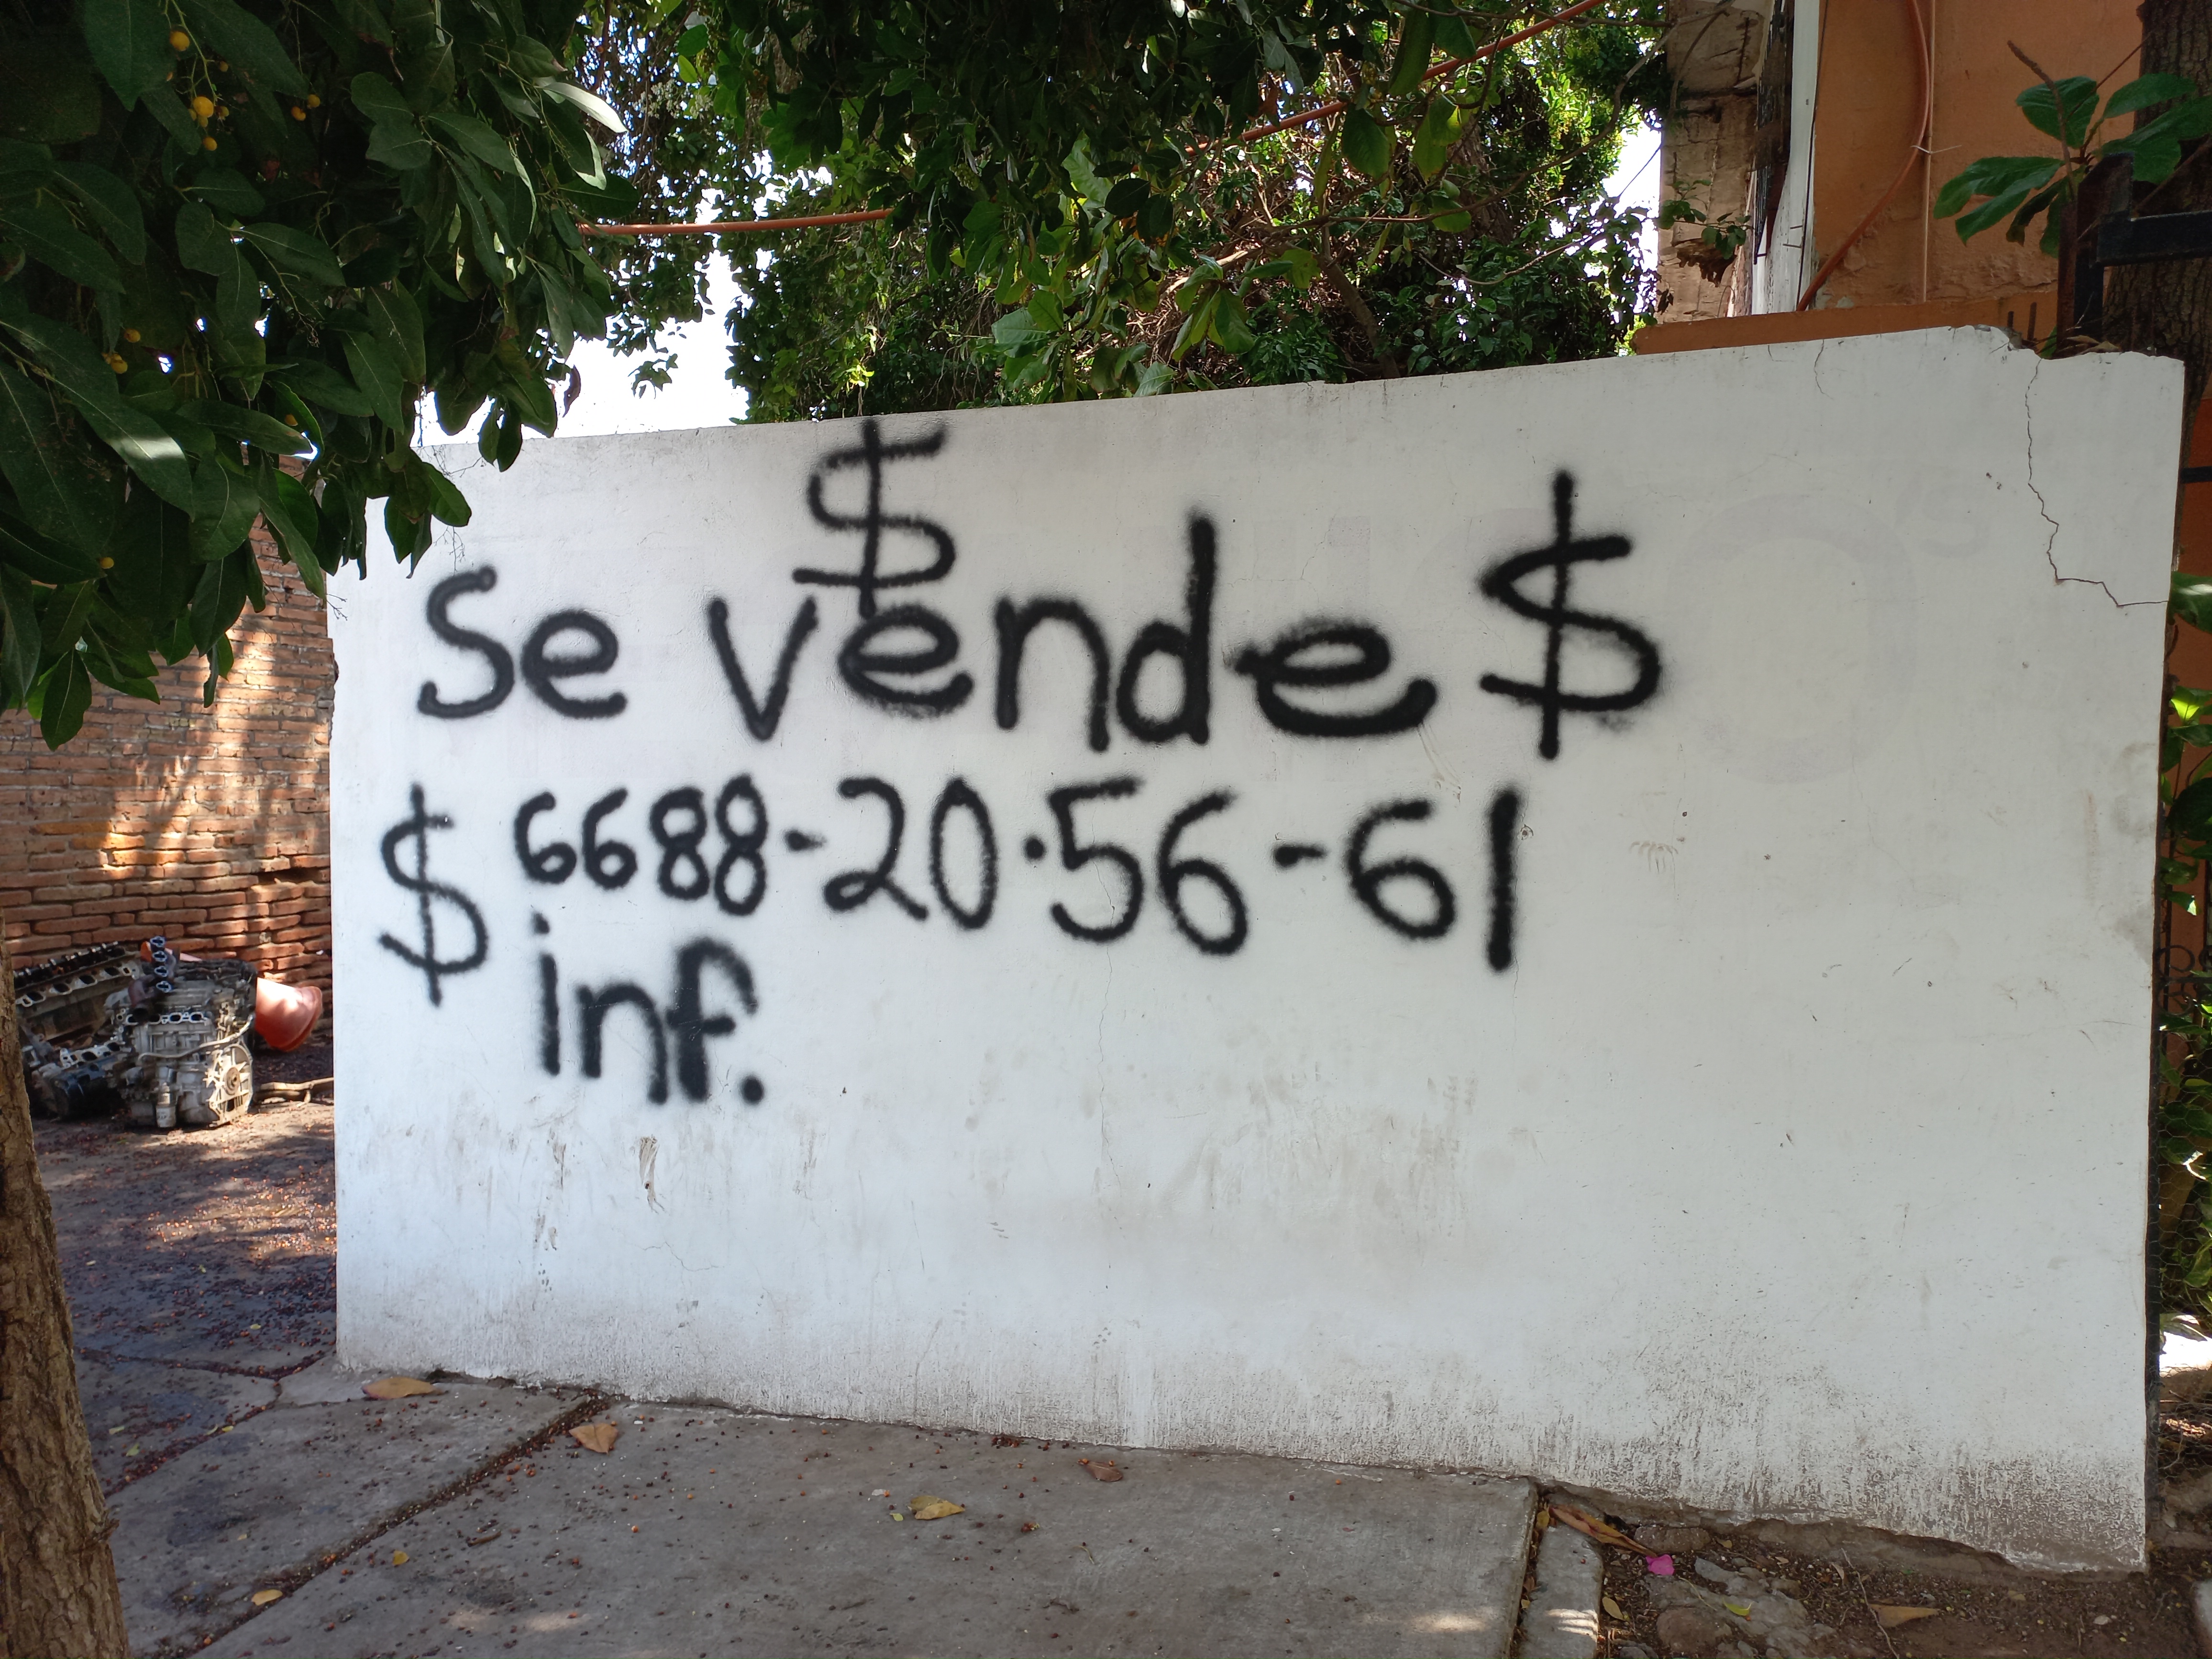 $
Se vende $
$ 6688-20·56-61
inf.